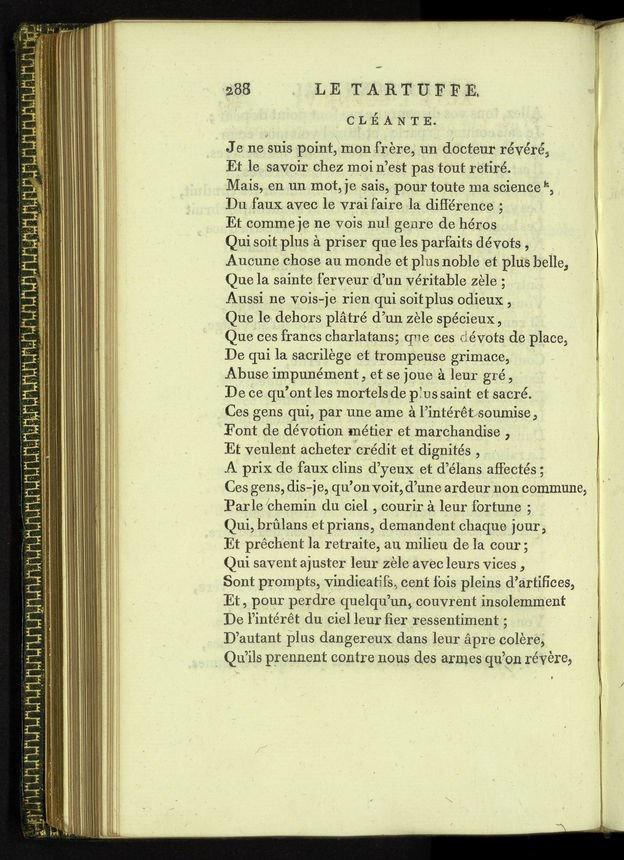 288 LE TARTUFFE.
CLÉANTE.
Je ne suis point, mon frère, un docteur révéré,
Et le savoir chez moi n'est pas tout retiré.
Mais, en un mot, je sais, pour toute ma science k,
Du faux avec le vrai faire la différence ;
Et comme je ne vois nul genre de héros
Qui soit plus à priser que les parfaits dévots,
Aucune chose au monde et plus noble et plus belle,
Que la sainte ferveur d'un véritable zèle ;
Aussi ne vois-je rien qui soit plus odieux,
Que le dehors plâtré d'un zèle spécieux,
Que ces francs charlatans; que ces dévots de place,
De qui la sacrilège et trompeuse grimace,
Abuse impunément, et se joue à leur gré,
De ce qu'ont les mortels de plus saint et sacré.
Ces gens qui, par une ame à l'intérêt soumise,
Font de dévotion métier et marchandise,
Et veulent acheter crédit et dignités,
A prix de faux clins d'yeux et d'élans affectés ;
Ces gens, dis-je, qu'on voit, d'une ardeur non commune,
Par le chemin du ciel, courir à leur fortune ;
Qui, brûlans et prians, demandent chaque jour,
Et prêchent la retraite, au milieu de la cour ;
Qui savent ajuster leur zèle avec leurs vices,
Sont prompts, vindicatifs, cent fois pleins d'artifices,
Et, pour perdre quelqu'un, couvrent insolemment
De l'intérêt du ciel leur fier ressentiment ;
D'autant plus dangereux dans leur âpre colère,
Qu'ils prennent contre nous des armes qu'on révère,